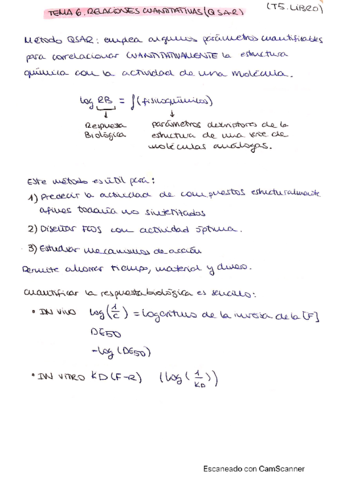 TEMA 6. RELACIONES CUANTITATIVAS (QSAR)
(T5. LIBRO)
Método QSAR: emplea algunos parámetros cuantificables
para correlacionar CUANTITATIVAMENTE la estructura
química con la actividad de una molécula.
log RB = f (fisicoquímico)
Respuesta Biológica
parámetros descriptores de la
estructura de una serie de
moléculas análogas.
Este método es útil para:
1) Predecir la actividad de compuestos estructuralmente
afines todavía no sintetizados
2) Diseñar FCOS con actividad óptima.
3) Estudiar mecanismos de acción
Permite ahorrar tiempo, material y dinero.
Cuantificar la respuesta biológica es sencillo:
• IN VIVO log (1/C) = Logaritmo de la inversa de la [F]
DE50
-log (DE50)
• IN VITRO KD (F-R) (log (1/KD))
Escaneado con CamScanner